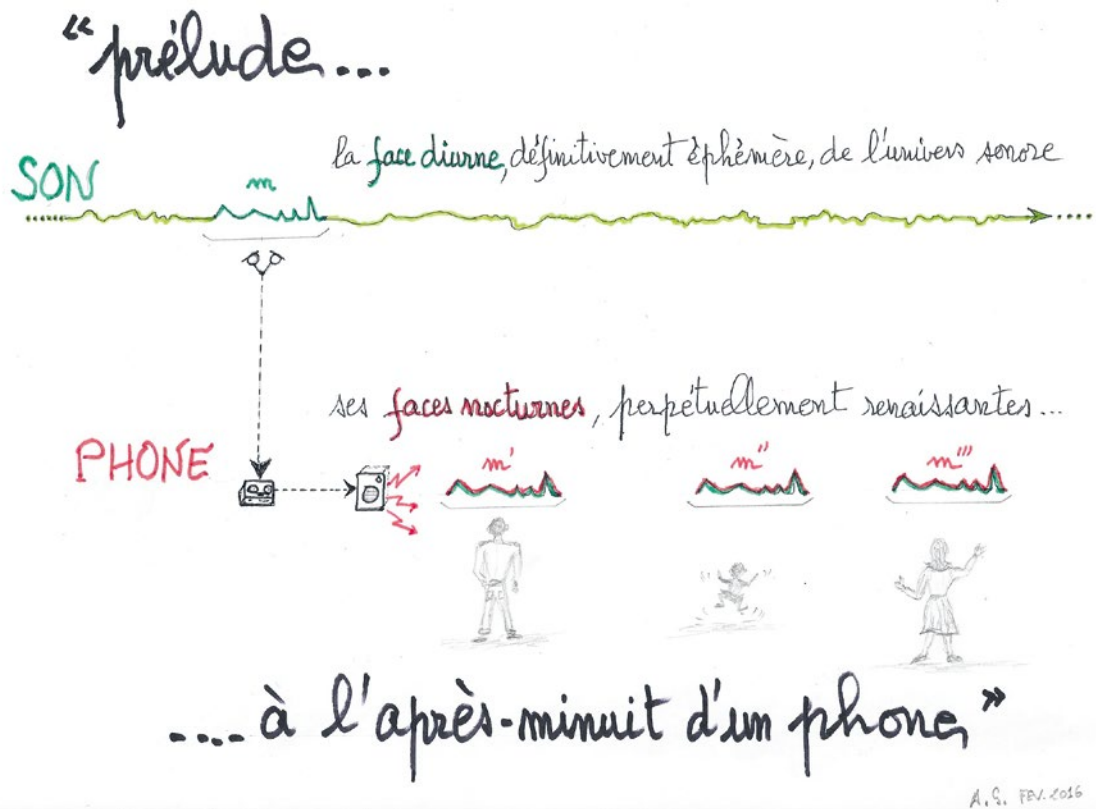 “prélude...
la face diurne, définitivement éphémère, de l'univers sonore
SON
m
ses faces nocturnes, perpétuellement renaissantes...
PHONE
m' m'' m'''
.... à l'après-minuit d'un phone”
A.G. FEV. 2016